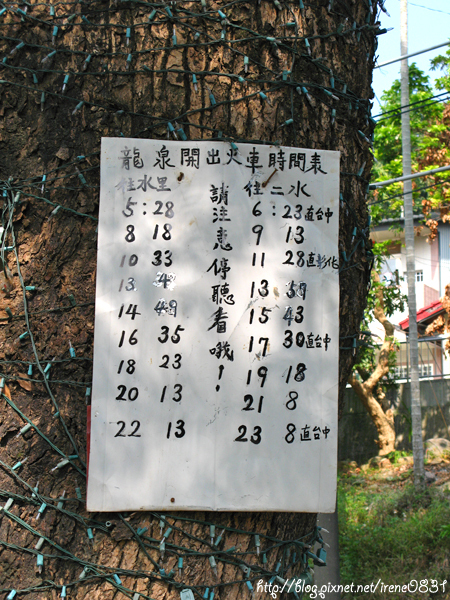 龍泉開出火車時間表
往水里
5:28
8 18
10 33
13
14 48
16 35
18 23
20 13
22 13
請注意停聽看哦!!
往二水
6:23直台中
9 13
11 28直彰化
13
15 43
17 30直台中
19 18
21 8
23 8直台中
http://blog.pixnet.net/irene0831